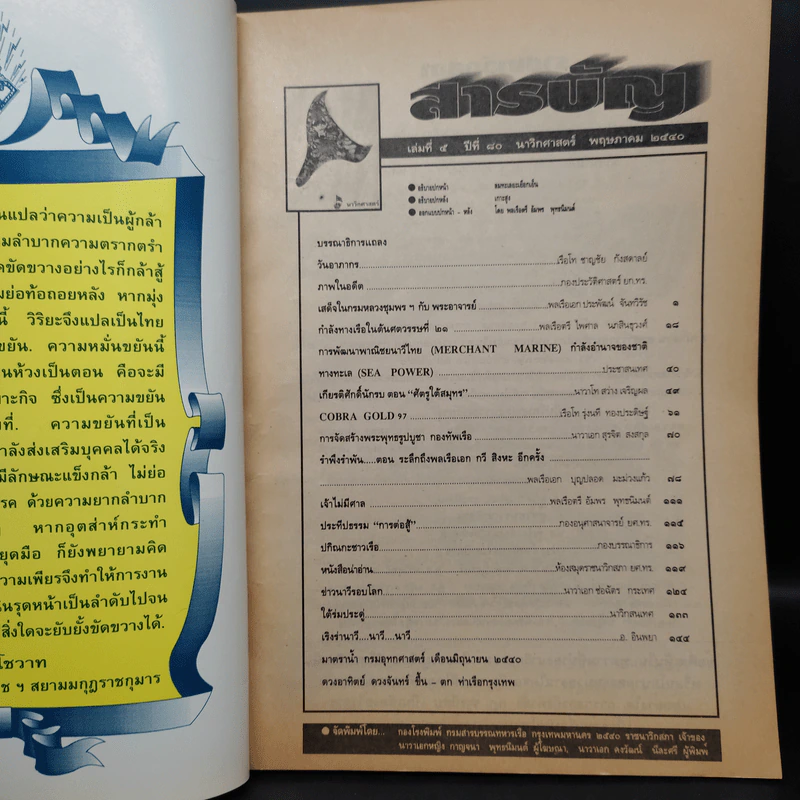 นแปลว่าความเป็นผู้กล้า
มลำบากความตรากตรำ
คขัดขวางอย่างไรก็กล้าสู้
มย่อท้อถอยหลัง หากมุ่ง
นี้ วิริยะจึงแปลเป็นไทย
ขยัน. ความหมั่นขยันนี้
นห้วงเป็นตอน คือจะมี
าะกิจ ซึ่งเป็นความขยัน
ที่. ความขยันที่เป็น
ำลังส่งเสริมบุคคลได้จริง
มีลักษณะแข็งกล้า ไม่ย่อ
รค ด้วยความยากลำบาก
หากอุตส่าห์กระทำ
ยุดมือ ก็ยังพยายามคิด
วามเพียรจึงทำให้การงาน
นรุดหน้าเป็นลำดับไปจน
สิ่งใดจะยับยั้งขัดขวางได้.
โชวาท
ช ฯ สยามมกุฎราชกุมาร
สารบัญ
เล่มที่ ๕ ปีที่ ๘๐ นาวิกศาสตร์ พฤษภาคม ๒๕๔๐
นาวิกศาสตร์
● อธิบายปกหน้า
● อธิบายปกหลัง
● ออกแบบปกหน้า - หลัง โดย พลเรือตรี อัมพร พุทธนิมนต์
บรรณาธิการแถลง
วันอาภากร เรือโท ชาญชัย กังสดาลย์
ภาพในอดีต กองประวัติศาสตร์ ยก.ทร.
เสด็จในกรมหลวงชุมพร ฯ กับ พระอาจารย์ พลเรือเอก ประพัฒน์ จันทวิรัช ๑
กำลังทางเรือในต้นศตวรรษที่ ๒๑ พลเรือตรี ไพศาล นภสินธุวงศ์ ๑๘
การพัฒนาพาณิชยนาวีไทย (MERCHANT MARINE) กำลังอำนาจของชาติ
ทางทะเล (SEA POWER) ประชาสนเทศ ๔๐
เกียรติศักดิ์นักรบ ตอน “ศัตรูใต้สมุทร” นาวาโท สว่าง เจริญผล ๔๙
COBRA GOLD 97 เรือโท รุ่งนที ทองประดิษฐ์ ๖๑
การจัดสร้างพระพุทธรูปบูชา กองทัพเรือ นาวาเอก สุรจิต สงสกุล ๗๐
รำพึงรำพัน.....ตอน ระลึกถึงพลเรือเอก ทวี สิงหะ อีกครั้ง
พลเรือเอก บุญปลอด มะม่วงแก้ว ๗๘
เจ้าไม่มีศาล พลเรือตรี อัมพร พุทธนิมนต์ ๑๑๑
ประทีปธรรม “การต่อสู้” กองอนุศาสนาจารย์ ยศ.ทร. ๑๑๔
ปกิณกะชาวเรือ กองบรรณาธิการ ๑๑๖
หนังสือน่าอ่าน ห้องสมุดราชนาวิกสภา ยศ.ทร. ๑๑๙
ข่าวนาวีรอบโลก นาวาเอก ช่อฉัตร กระเทศ ๑๒๔
ใต้ร่มประดู่ นาวิกสนเทศ ๑๓๓
เริงร่านาวี....นาวี....นาวี อ. อินพยา ๑๔๕
มาตราน้ำ กรมอุทกศาสตร์ เดือนมิถุนายน ๒๕๔๐
ดวงอาทิตย์ ดวงจันทร์ ขึ้น - ตก ท่าเรือกรุงเทพ
● จัดพิมพ์โดย... กองโรงพิมพ์ กรมสารบรรณทหารเรือ กรุงเทพมหานคร ๒๕๔๐ ราชนาวิกสภา เจ้าของ
นาวาเอกหญิง กาญจนา พุทธนิมนต์ ผู้โฆษณา, นาวาเอก คงวัฒน์ นีละศรี ผู้พิมพ์